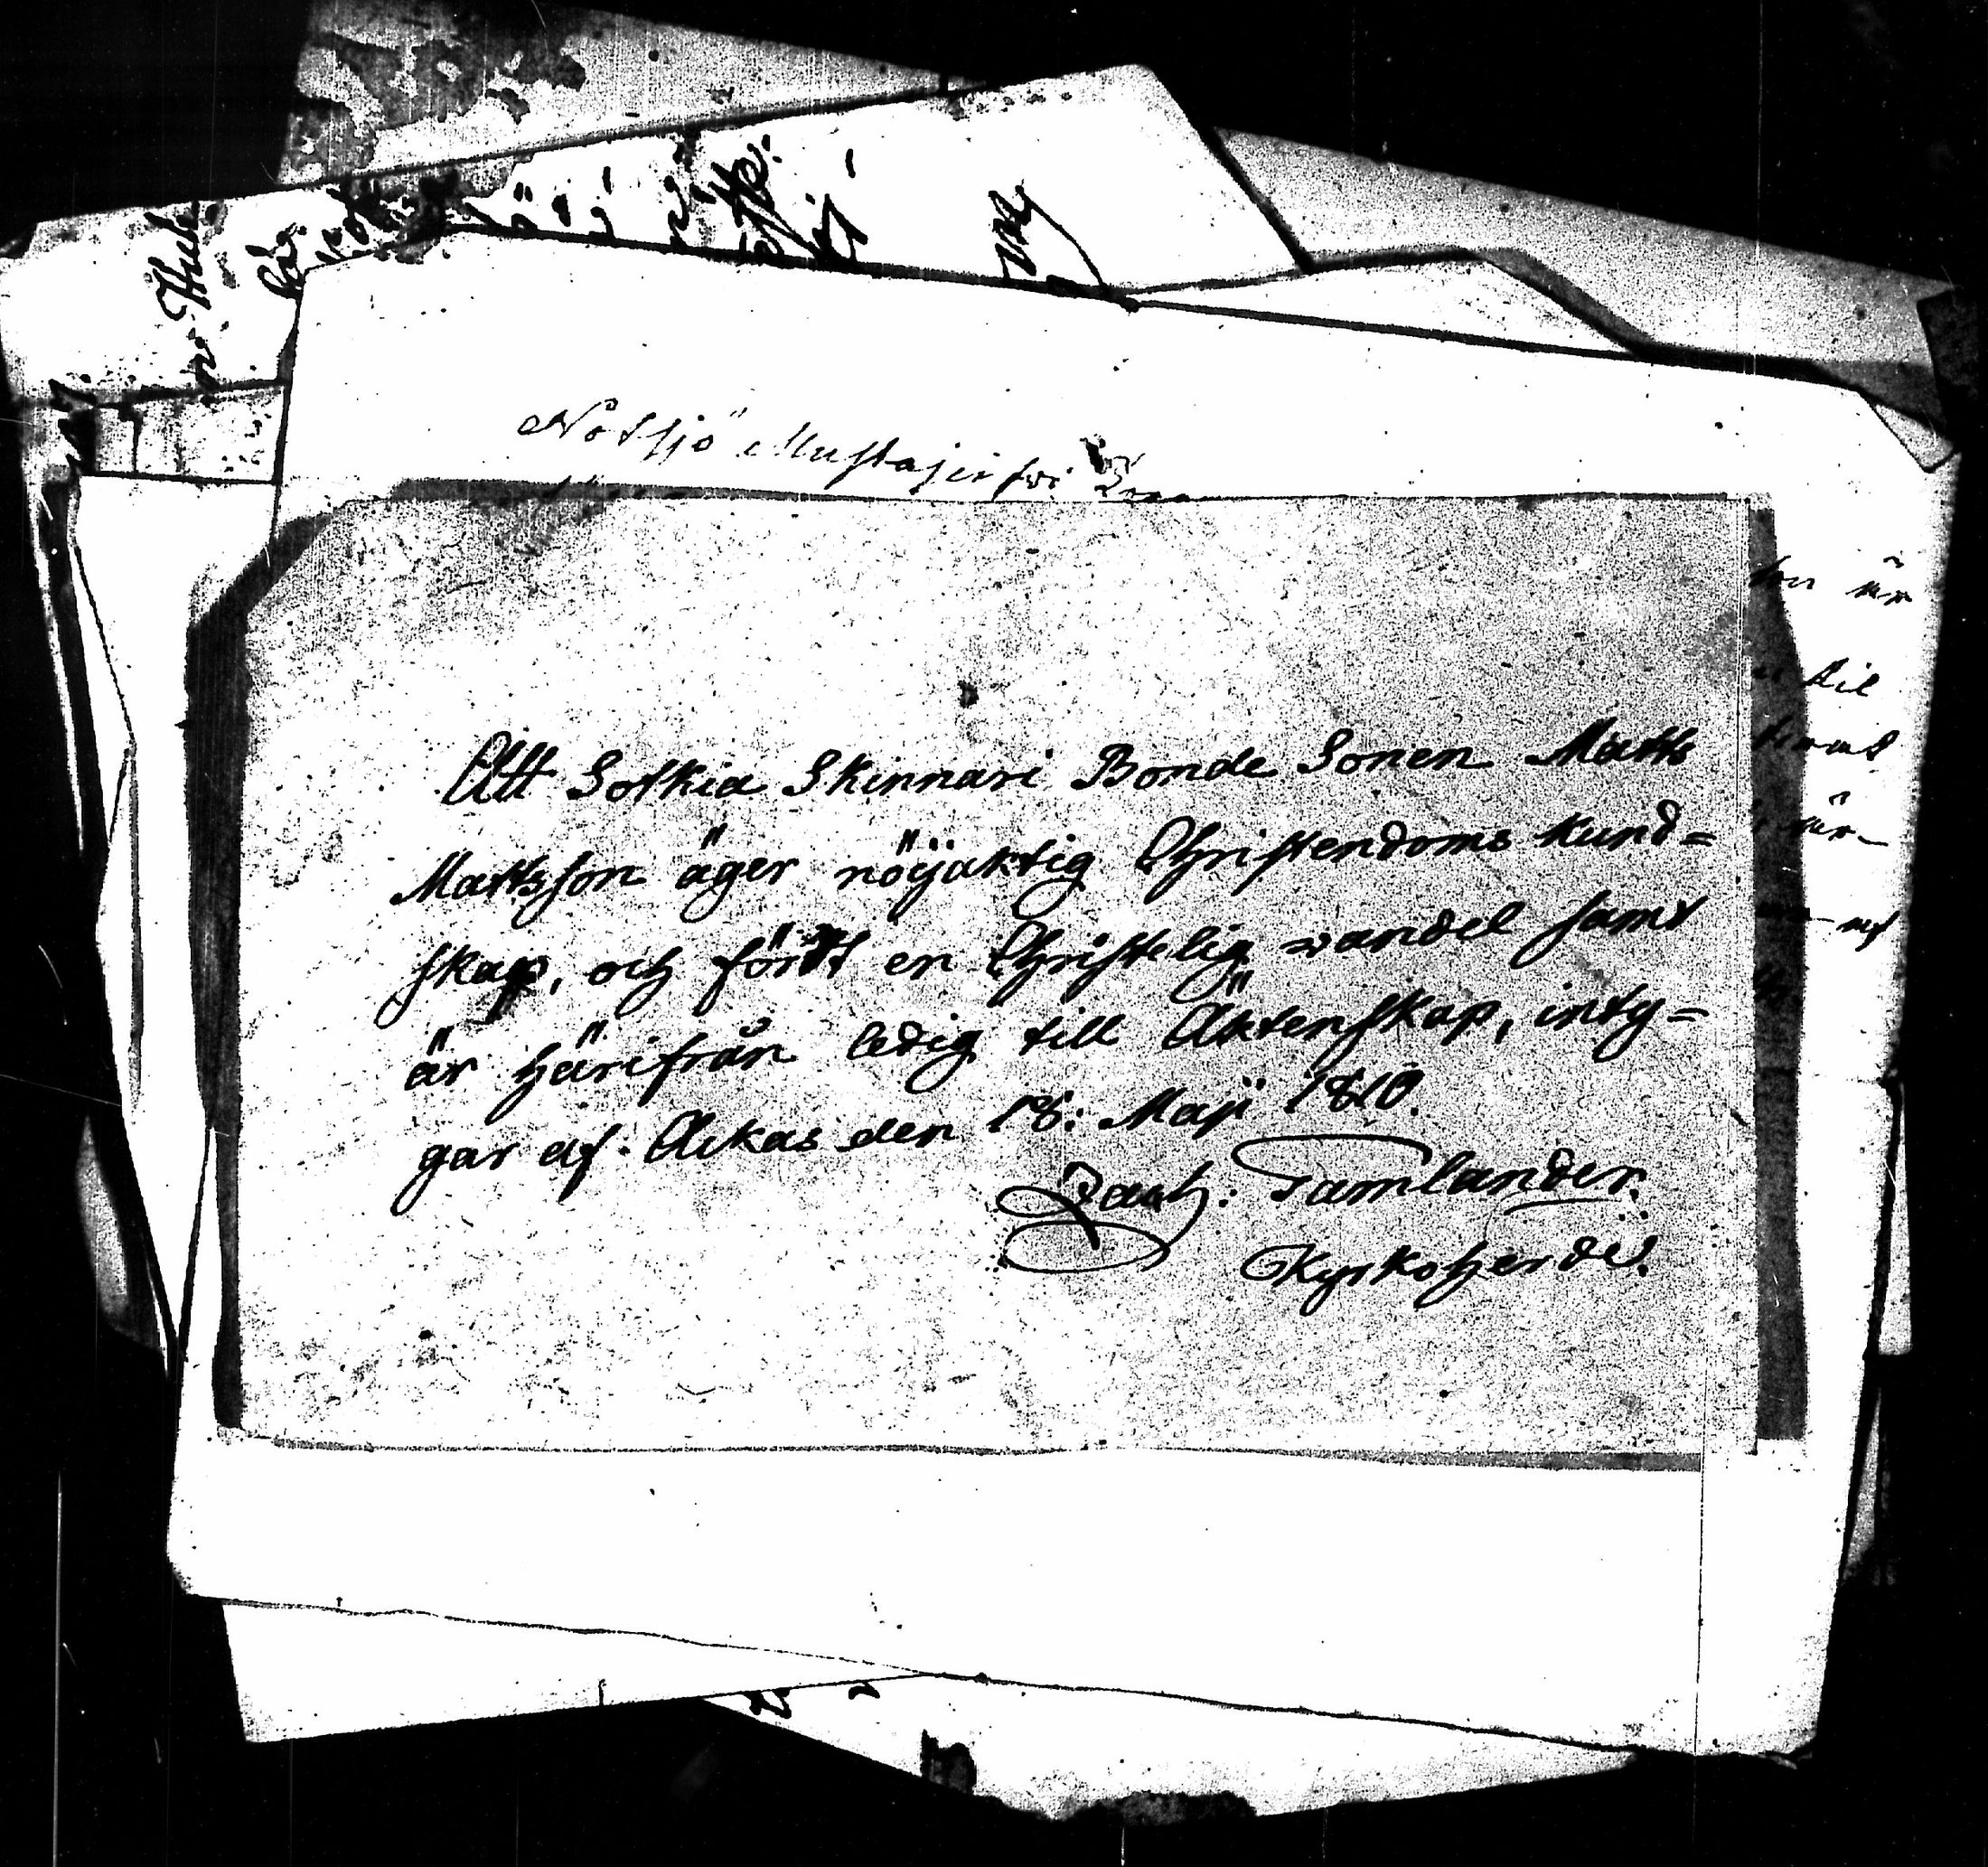 Nötsjö Mustajerfvi
Att Sotkia Skinnari Bonde Sonen Matts
Mattsson äger nöijaktig Christendoms kund=
skap, och fördt en Christelig wandel samt
är härifrån ledig till Äktenskap, inty=
gar af. Ackas den 18: Maji 1810.
Zach: Tamlander.
Kyrkoherde.
är
til
är